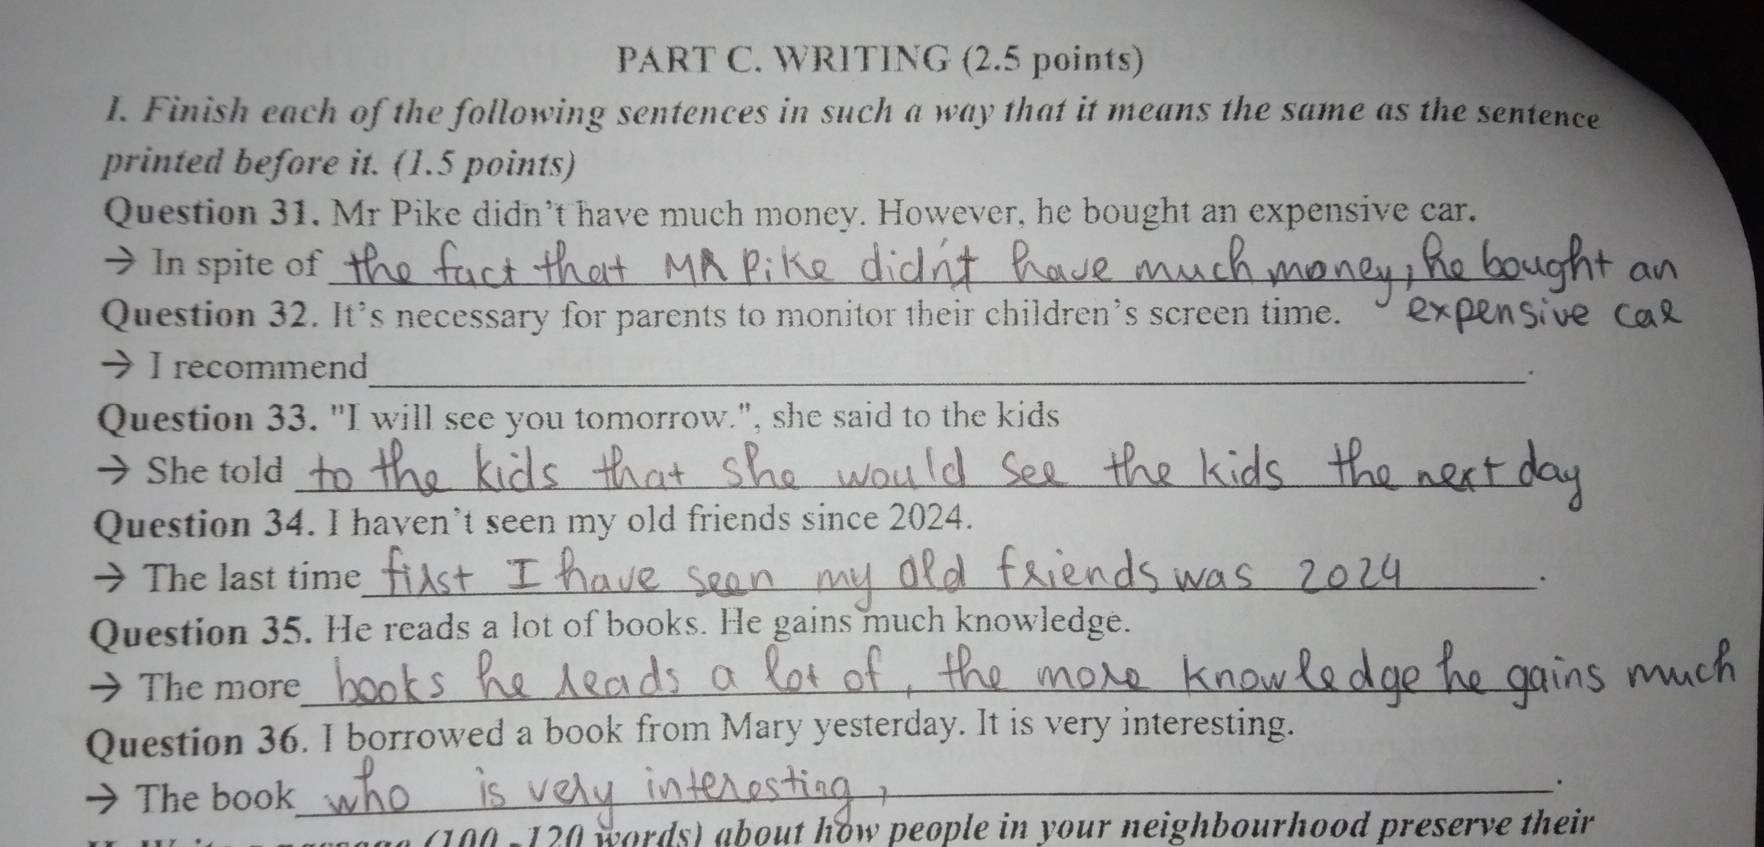 PART C. WRITING (2.5 points)
I. Finish each of the following sentences in such a way that it means the same as the sentence
printed before it. (1.5 points)
Question 31. Mr Pike didn't have much money. However, he bought an expensive car.
→ In spite of the fact that MR Pike didn't have much money, he bought an
expensive car
Question 32. It's necessary for parents to monitor their children's screen time.
→ I recommend ______.
Question 33. "I will see you tomorrow.", she said to the kids
→ She told to the kids that she would see the kids the next day
Question 34. I haven't seen my old friends since 2024.
→ The last time first I have seen my old friends was 2024.
Question 35. He reads a lot of books. He gains much knowledge.
→ The more books he reads a lot of, the more knowledge he gains much
Question 36. I borrowed a book from Mary yesterday. It is very interesting.
→ The book who is very interesting, .
(100 -120 words) about how people in your neighbourhood preserve their